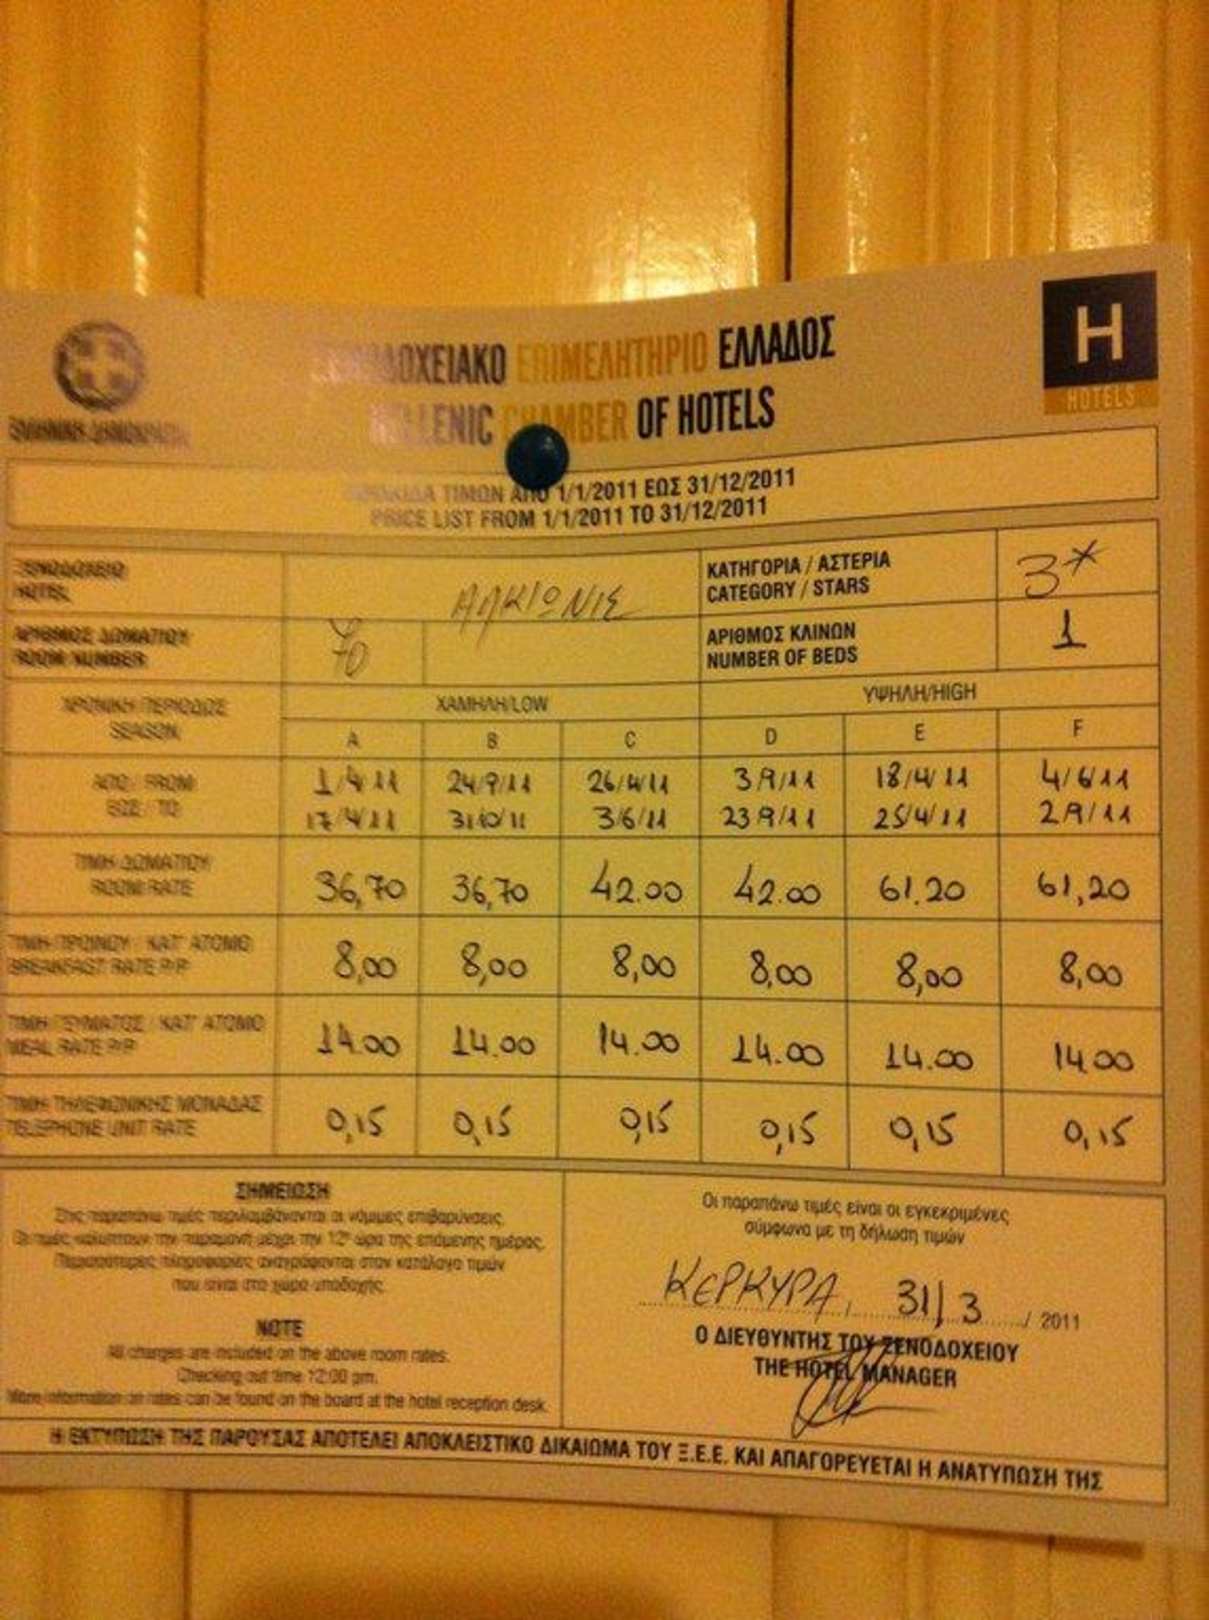 ΞΕΝΟΔΟΧΕΙΑΚΟ ΕΠΙΜΕΛΗΤΗΡΙΟ ΕΛΛΑΔΟΣ
HELLENIC CHAMBER OF HOTELS
H
HOTELS
ΕΛΛΗΝΙΚΗ ΔΗΜΟΚΡΑΤΙΑ
ΠΙΝΑΚΙΔΑ ΤΙΜΩΝ ΑΠΟ 1/1/2011 ΕΩΣ 31/12/2011
PRICE LIST FROM 1/1/2011 TO 31/12/2011
ΞΕΝΟΔΟΧΕΙΟ
HOTEL
ΑΛΚΙΟΝΙΣ
ΚΑΤΗΓΟΡΙΑ / ΑΣΤΕΡΙΑ
CATEGORY / STARS
3*
ΑΡΙΘΜΟΣ ΔΩΜΑΤΙΟΥ
ROOM NUMBER
70
ΑΡΙΘΜΟΣ ΚΛΙΝΩΝ
NUMBER OF BEDS
1
ΧΡΟΝΙΚΗ ΠΕΡΙΟΔΟΣ
SEASON
ΧΑΜΗΛΗ/LOW ΥΨΗΛΗ/HIGH
A B C D E F
ΑΠΟ / FROM 1/4/11 24/9/11 26/4/11 3/9/11 18/4/11 4/6/11
ΕΩΣ / TO 17/4/11 31/10/11 3/6/11 23/9/11 25/4/11 2/9/11
ΤΙΜΗ ΔΩΜΑΤΙΟΥ
ROOM RATE
36,70 36,70 42.00 42.00 61.20 61,20
ΤΙΜΗ ΠΡΩΙΝΟΥ / ΚΑΤ' ΑΤΟΜΟ
BREAKFAST RATE P/P
8,00 8,00 8,00 8,00 8,00 8,00
ΤΙΜΗ ΓΕΥΜΑΤΟΣ / ΚΑΤ' ΑΤΟΜΟ
MEAL RATE P/P
14.00 14.00 14.00 14.00 14.00 14.00
ΤΙΜΗ ΤΗΛΕΦΩΝΙΚΗΣ ΜΟΝΑΔΑΣ
TELEPHONE UNIT RATE
0,15 0,15 0,15 0,15 0,15 0,15
ΣΗΜΕΙΩΣΗ
Στις παραπάνω τιμές περιλαμβάνονται οι νόμιμες επιβαρύνσεις.
Οι τιμές καλύπτουν την παραμονή μέχρι την 12η ώρα της επόμενης ημέρας.
Περισσότερες πληροφορίες αναγράφονται στον κατάλογο τιμών
που είναι στο χώρο υποδοχής.
NOTE
All charges are included on the above room rates.
Checking out time 12:00 pm.
More information on rates can be found on the board at the hotel reception desk.
Οι παραπάνω τιμές είναι οι εγκεκριμένες
σύμφωνα με τη δήλωση τιμών
ΚΕΡΚΥΡΑ, 31/3 / 2011
Ο ΔΙΕΥΘΥΝΤΗΣ ΤΟΥ ΞΕΝΟΔΟΧΕΙΟΥ
THE HOTEL MANAGER
Η ΕΚΤΥΠΩΣΗ ΤΗΣ ΠΑΡΟΥΣΑΣ ΑΠΟΤΕΛΕΙ ΑΠΟΚΛΕΙΣΤΙΚΟ ΔΙΚΑΙΩΜΑ ΤΟΥ Ξ.Ε.Ε. ΚΑΙ ΑΠΑΓΟΡΕΥΕΤΑΙ Η ΑΝΑΤΥΠΩΣΗ ΤΗΣ